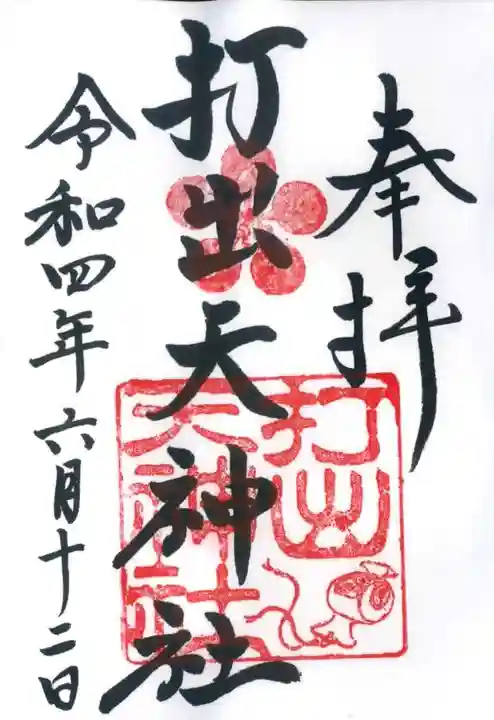 奉拝
打出天神社
令和四年六月十二日
打出
天神社